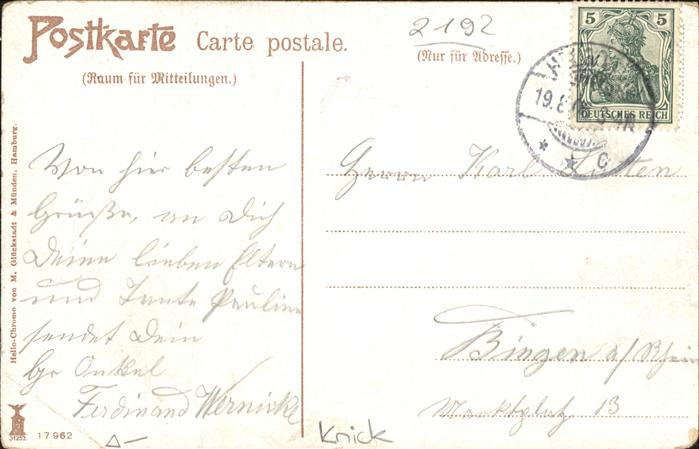 Postkarte Carte postale.
(Raum für Mitteilungen.)
2192
(Nur für Adresse.)
5 5
DEUTSCHES REICH
19.8.
C
Helio-Chromo von M. Glückstadt & Münden, Hamburg.
Von hier besten
Grüße, an Dich
Deine lieben Eltern
und Tante Pauline
sendet Dein
Onkel
Ferdinand Wernicke
Herrn Karl
Bingen a/Rhein
Marktplatz 13
17962
Knick